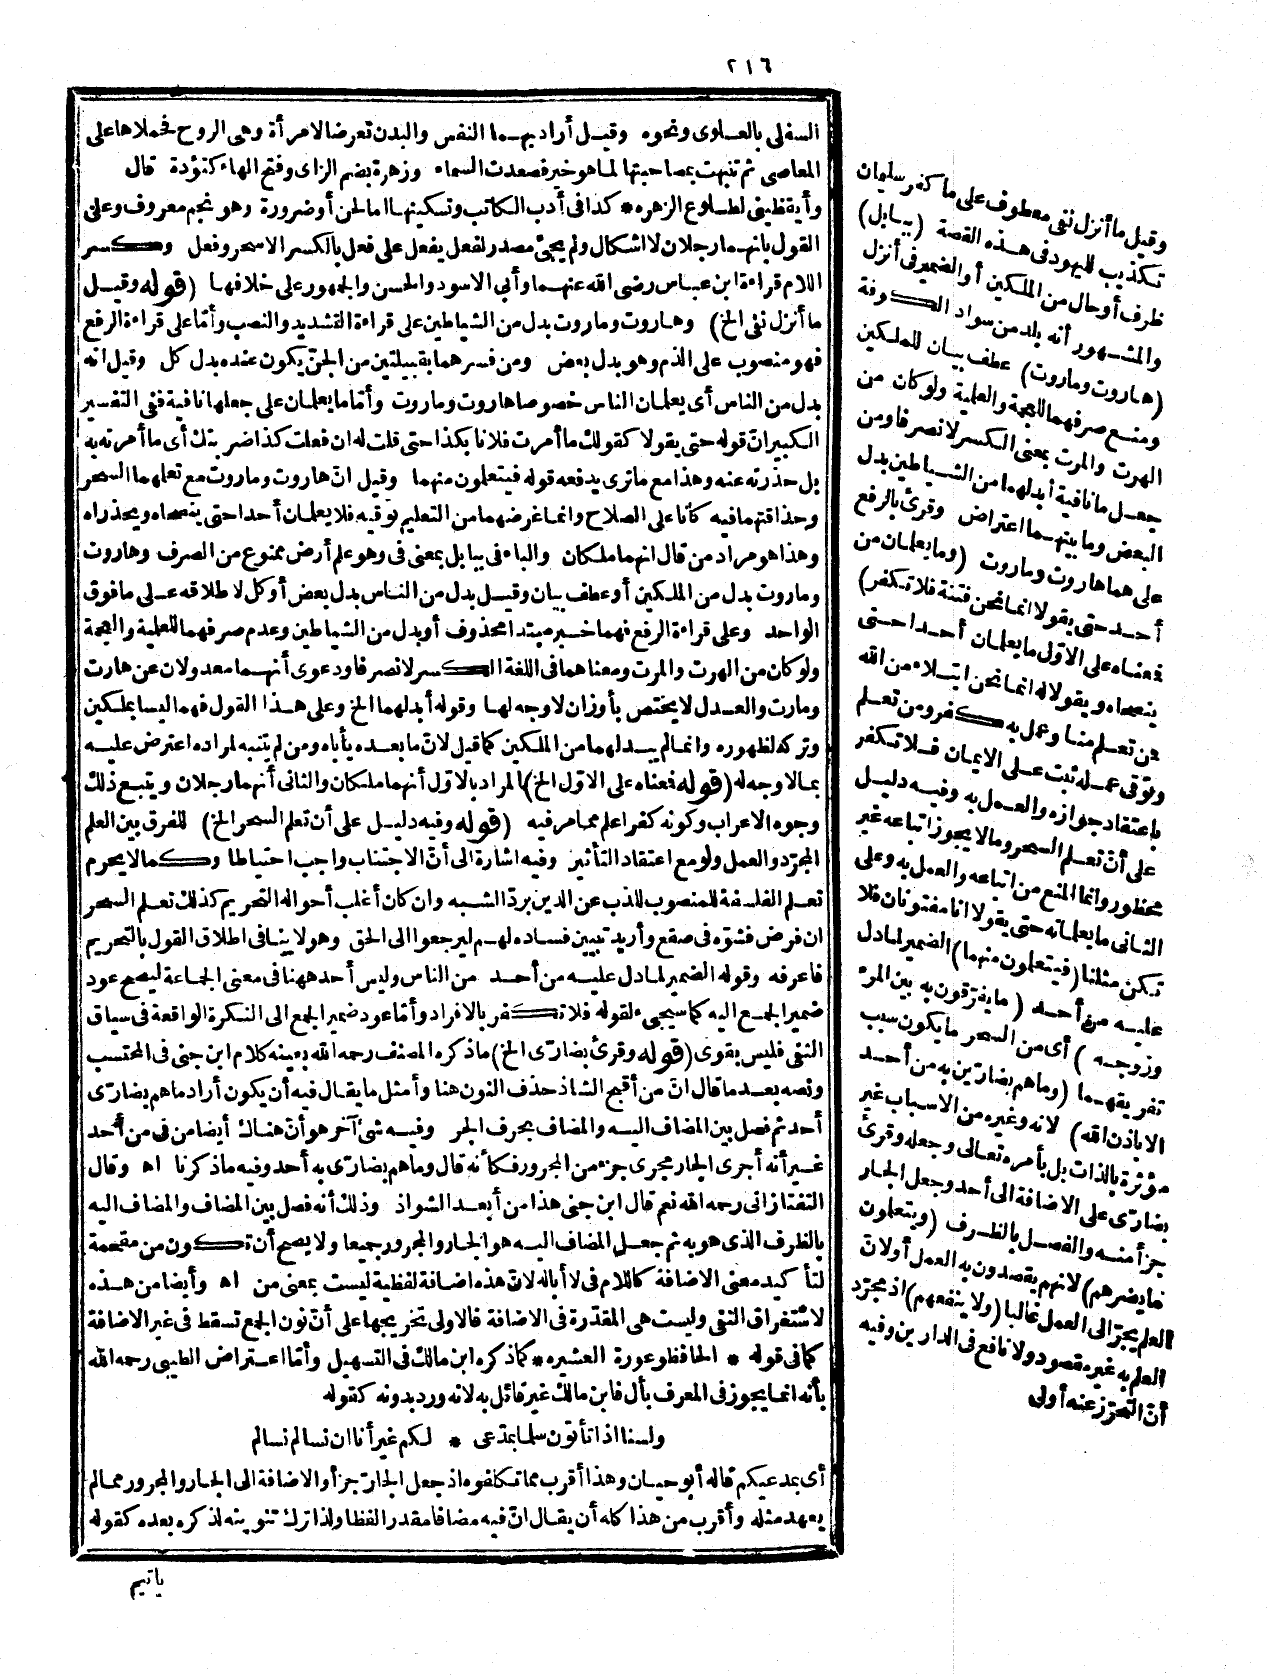 ٢١٦
السفلى بالعلوى ونحوه وقيل أراد بهما النفس والبدن تعرضا لامرأة وهى الروح فحملاها على
المعاصى ثم تنبهت بمصاحبتها لما هو خير فصعدت السماء وزهرة بضم الزاى وفتح الهاء كتؤدة قال
وأيقظينى لطلوع الزهره * كذا فى أدب الكاتب وتسكينها اما لحن أو ضرورة وهو نجم معروف وعلى
القول بانهما رجلان لا اشكال ولم يجئ مصدر لفعل يفعل على فعل بالكسر الا سحر وفعل وكسر
اللام قراءة ابن عباس رضى الله عنهما وأبى الاسود والحسن والجمهور على خلافها (قوله وقيل
ما أنزل نفى الخ) وهاروت وماروت بدل من الشياطين على قراءة التشديد والنصب وأما على قراءة الرفع
فهو منصوب على الذم وهو بدل بعض ومن فسرهما بقبيلتين من الجنّ يكون عنده بدل كل وقيل انه
بدل من الناس أى يعلمان الناس خصوصا هاروت وماروت وأمّا ما يعلمان على جعلها نافية ففى التفسير
الكبير انّ قوله حتى يقولا كقولك ما أمرت فلانا بكذا حتى قلت له ان فعلت كذا ضربتك أى ما أمرته به
بل حذرته عنه وهذا مع ما ترى يدفعه قوله فيتعلمون منهما وقيل انّ هاروت وماروت مع تعلمهما السحر
وحذاقتهما فيه كانا على الصلاح وانما غرضهما من التعليم توقيه فلا يعلمان أحدا حتى ينصحاه ويحذراه
وهذا هو مراد من قال انهما ملكان والباء فى ببابل بمعنى فى وهو علم أرض ممنوع من الصرف وهاروت
وماروت بدل من الملكين أو عطف بيان وقيل بدل من الناس بدل بعض أو كل لاطلاقه على ما فوق
الواحد وعلى قراءة الرفع فهما خبر مبتدا محذوف أو بدل من الشياطين وعدم صرفهما للعلمية والعجمة
ولو كان من الهرت والمرت ومعناهما فى اللغة الكسر لانصرفا ودعوى أنهما معدولان عن هارت
ومارت والعدل لا يختص بأوزان لا وجه لها وقوله أبدلهما الخ وعلى هذا القول فهما ليسا بملكين
وتركه لظهوره وانما لم يبدلهما من الملكين كما قيل لانّ ما بعده يأباه ومن لم يتنبه لمراده اعترض عليه
بما لا وجه له (قوله فمعناه على الاوّل الخ) المراد بالاول أنهما ملكان والثانى أنهما رجلان ويتبع ذلك
وجوه الاعراب وكونه كفرا علم مما مر فيه (قوله وفيه دليل على أن تعلم السحر الخ) للفرق بين العلم
المجرّد والعمل ولو مع اعتقاد التأثير وفيه اشارة الى أنّ الاجتناب واجب احتياطا وكما لا يحرم
تعلم الفلسفة للمنصوب للذب عن الدين بردّ الشبه وان كان أغلب أحواله التحريم كذلك تعلم السحر
ان فرض فشوّه فى صقع وأريد تبيين فساده لهم ليرجعوا الى الحق وهو لا ينافى اطلاق القول بالتحريم
فاعرفه وقوله الضمير لما دل عليه من أحد من الناس وليس أحد ههنا فى معنى الجماعة ليصح عود
ضمير الجمع اليه كما سيجىء لقوله فلا تكفر بالافراد وأمّا عود ضمير الجمع الى النكرة الواقعة فى سياق
النفى فليس بقوى (قوله وقرئ بضارّى الخ) ما ذكره المصنف رحمه الله بعينه كلام ابن جنى فى المحتسب
ونصه بعد ما قال انّ من أقبح الشاذ حذف النون هنا وأمثل ما يقال فيه أن يكون أراد ما هم بضارّى
أحد ثم فصل بين المضاف اليه والمضاف بحرف الجر وفيه شئ آخر هو أنّ هناك أيضا من فى من أحد
غير أنه أجرى الجار مجرى جزء من المجرور فكأنه قال وما هم بضارّى به أحد وفيه ما ذكرنا اه وقال
التفتازانى رحمه الله نعم قال ابن جنى هذا من أبعد الشواذ وذلك أنه فصل بين المضاف والمضاف اليه
بالظرف الذى هو به ثم جعل المضاف اليه هو الجار والمجرور جميعا ولا يصح أن تكون من مقحمة
لتأكيد معنى الاضافة كاللام فى لا أباله لانّ هذه اضافة لفظية ليست بمعنى من اه وأيضا من هذه
لاستغراق النفى وليست هى المقدّرة فى الاضافة فالاولى تخريجها على أنّ نون الجمع تسقط فى غير الاضافة
كما فى قوله * الحافظو عورة العشيره * كما ذكره ابن مالك فى التسهيل وأمّا اعتراض الطيبى رحمه الله
بأنه انما يجوز فى المعرف بأل فابن مالك غير قائل به لانه ورد بدونه كقوله
ولسنا اذا تأتون سلما بمدّعى * لكم غير أنا ان نسالم نسالم
أى بمدعيكم قاله أبو حيان وهذا أقرب مما تكلفوه اذ جعل الجارّ جزأ والاضافة الى الجار والمجرور مما لم
يعهد مثله وأقرب من هذا كله أن يقال انّ فيه مضافا مقدر الفظا ولذا ترك تنوينه لذكره بعده كقوله
ياتيم
وقيل ما أنزل نفى معطوف على ما كفر سليمان
تكذيب لليهود فى هذه القصة (ببابل)
ظرف أو حال من الملكين أو الضمير فى أنزل
والمشهور أنه بلد من سواد الكوفة
(هاروت وماروت) عطف بيان للملكين
ومنع صرفهما للعجمة والعلمية ولو كان من
الهرت والمرت بمعنى الكسر لانصرفا ومن
جعل ما نافية أبدلهما من الشياطين بدل
البعض وما بينهما اعتراض وقرئ بالرفع
على هما هاروت وماروت (وما يعلمان من
أحد حتى يقولا انما نحن فتنة فلا تكفر)
فمعناه على الاوّل ما يعلمان أحدا حتى
ينصحاه ويقولا له انما نحن ابتلاء من الله
فمن تعلم منا وعمل به كفر ومن تعلم
وتوقى عمله ثبت على الايمان فلا تكفر
باعتقاد جوازه والعمل به وفيه دليل
على أنّ تعلم السحر وما لا يجوز اتباعه غير
محظور وانما المنع من اتباعه والعمل به وعلى
الثانى ما يعلمانه حتى يقولا انا مفتونان فلا
تكن مثلنا (فيتعلمون منهما) الضمير لما دل
عليه من أحد (ما يفرّقون به بين المرء
وزوجه) أى من السحر ما يكون سبب
تفريقهما (وما هم بضارّين به من أحد
الا باذن الله) لانه وغيره من الاسباب غير
مؤثرة بالذات بل بأمره تعالى وجعله وقرئ
بضارّى على الاضافة الى أحد وجعل الجار
جزأ منه والفصل بالظرف (ويتعلمون
ما يضرهم) لانهم يقصدون به العمل أو لانّ
العلم يجرّ الى العمل غالبا (ولا ينفعهم) اذ مجرّد
العلم به غير مقصود ولا نافع فى الدارين وفيه
أنّ التحرّز عنه أولى